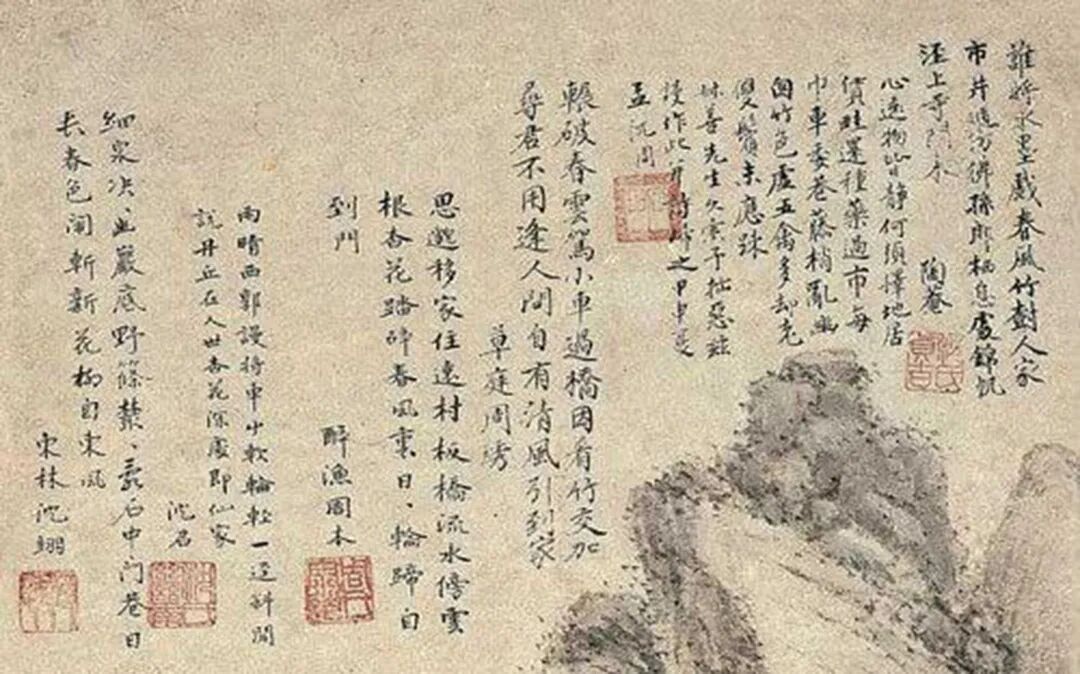 誰將水墨戲春風竹樹人家
市井彷彿孫郎栖息處錦帆
涇上寺門東
陶菴
心遠物皆靜何須擇地居
畦還種藥過市每
巾車委巷藤梢亂幽
園竹色虛五禽多却老
雙鬢未應疎
善先生久索予拙惡茲
漫作此并詩歸之甲申夏
孟沈周
輾破春雲駕小車過橋因看竹交加
尋君不用逢人問自有清風引到家
草庭周
思趣移家住遠村板橋流水傍雲
根杏花踏碎春風裏日〻輪蹄自
到門
醉漁周本
雨晴西郭謾待車小軟輪輕一逕斜閒
說丹丘在人世杏花深處即仙家
沈召
細泉決〻幽巖底野篠叢〻亂石中門巷日
長春色閙斬新花柳自東風
東林沈翊